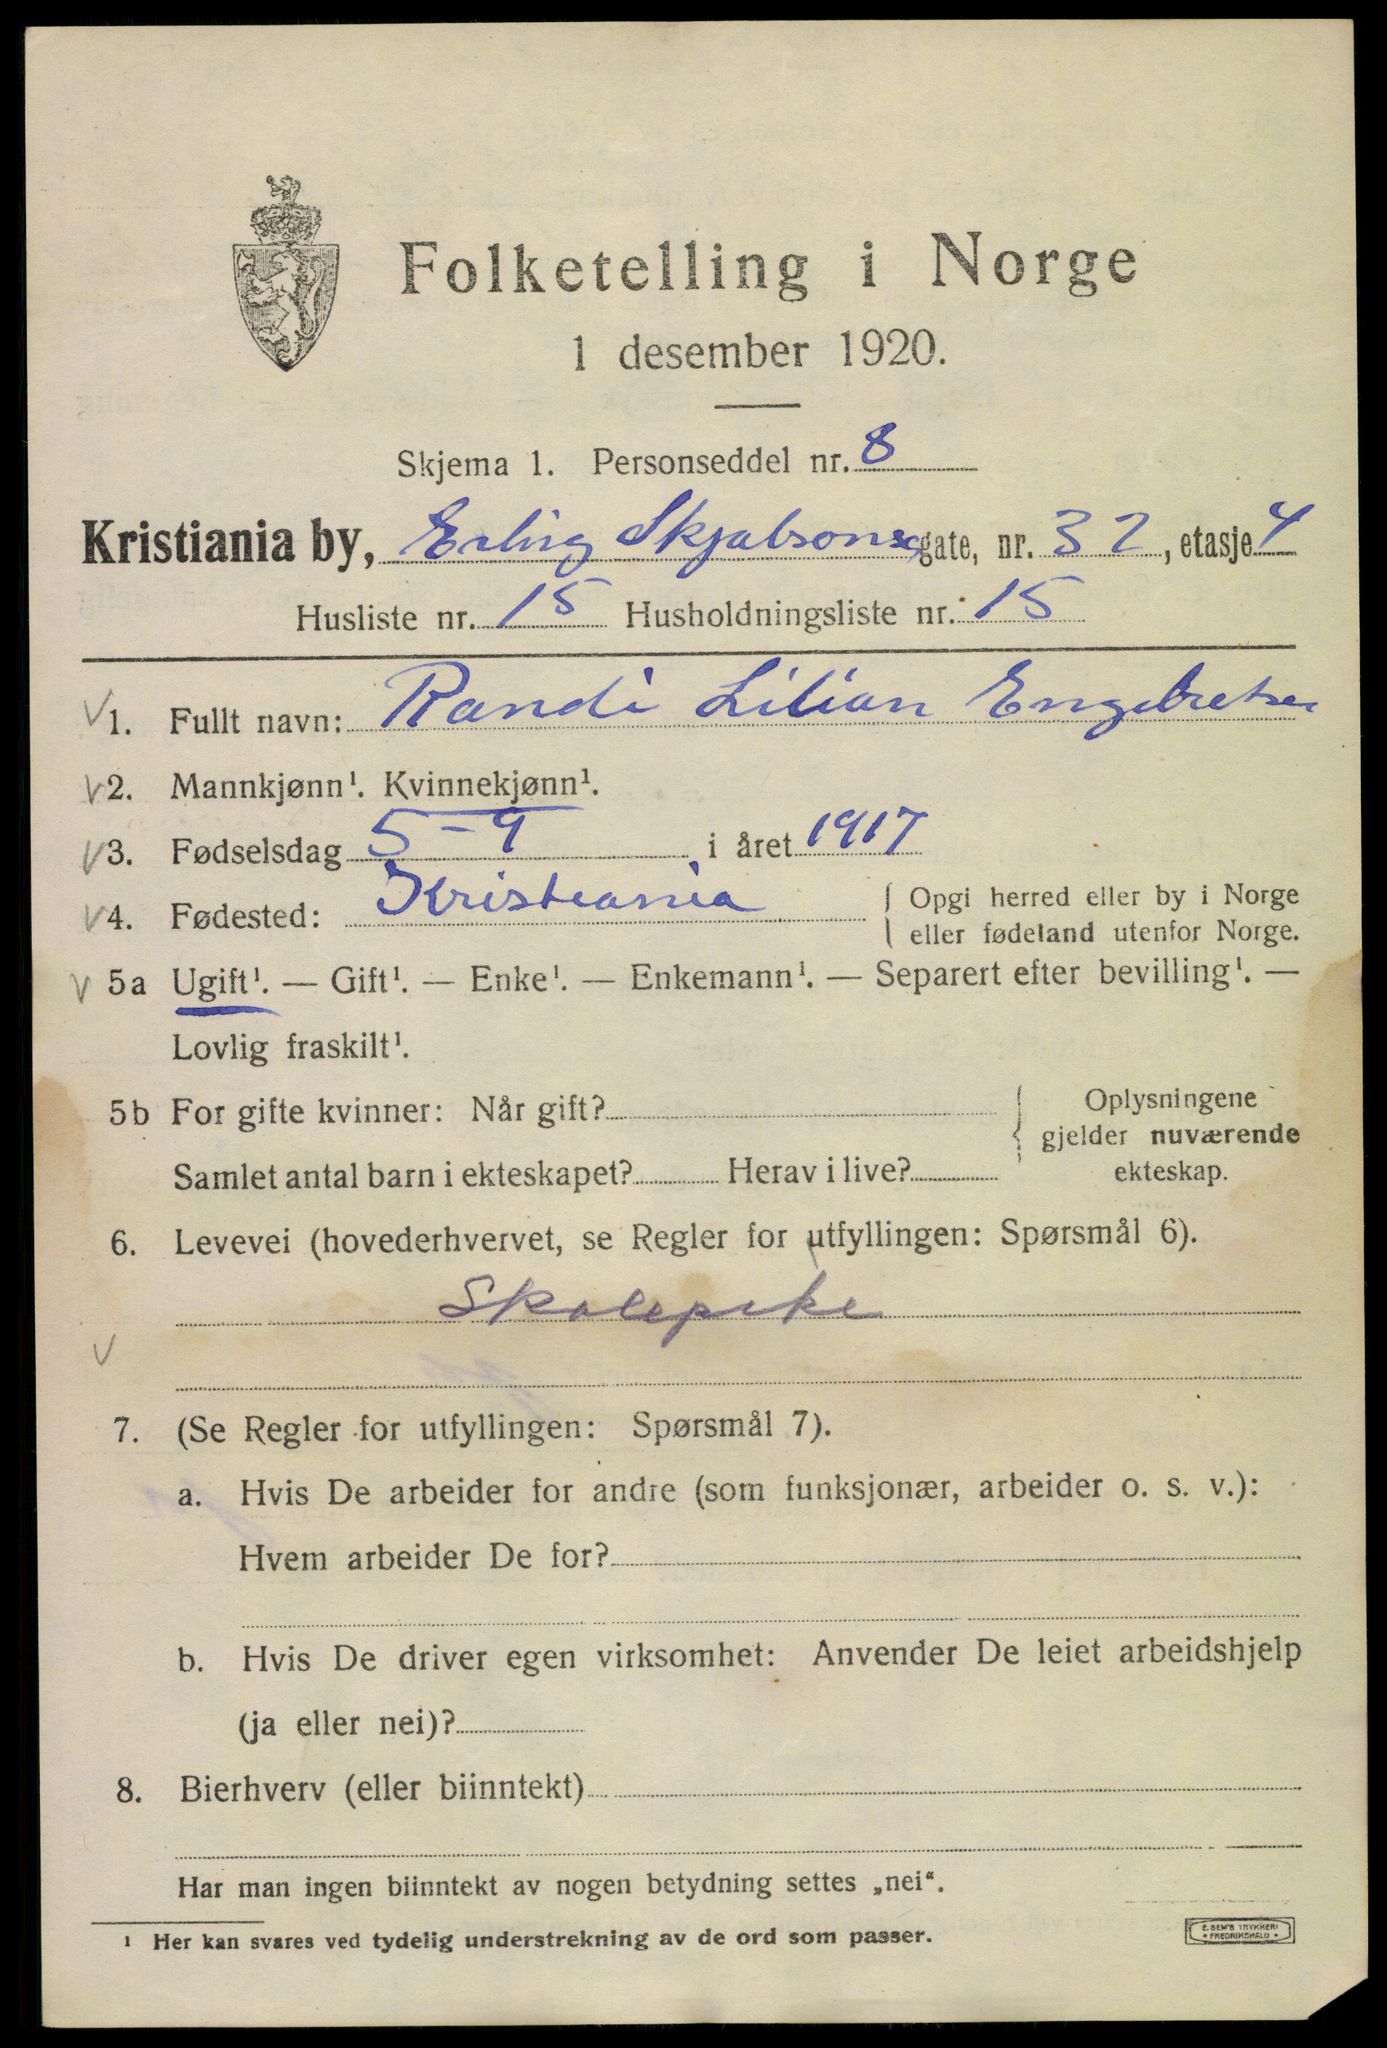 Folketelling i Norge
1 desember 1920.
Skjema 1. Personseddel nr. 8
Kristiania by, Erling Skjalsonsgate, nr. 32, etasje 4
Husliste nr. 15 Husholdningsliste nr. 15
1. Fullt navn: Randi Lilian Engebretsen
2. Mannkjønn¹. Kvinnekjønn¹.
3. Fødselsdag 5-9 i året 1917
4. Fødested: Kristiania { Opgi herred eller by i Norge
eller fødeland utenfor Norge.
5a Ugift¹. — Gift¹. — Enke¹. — Enkemann¹. — Separert efter bevilling¹. —
Lovlig fraskilt¹.
5b For gifte kvinner: Når gift? { Oplysningene
gjelder nuværende
Samlet antal barn i ekteskapet? Herav i live? ekteskap.
6. Levevei (hovederhvervet, se Regler for utfyllingen: Spørsmål 6).
Skolepike
7. (Se Regler for utfyllingen: Spørsmål 7).
a. Hvis De arbeider for andre (som funksjonær, arbeider o. s. v.):
Hvem arbeider De for?
b. Hvis De driver egen virksomhet: Anvender De leiet arbeidshjelp
(ja eller nei)?
8. Bierhverv (eller biinntekt)
Har man ingen biinntekt av nogen betydning settes „nei“.
¹ Her kan svares ved tydelig understrekning av de ord som passer.
E. SEM'S TRYKKERI
• FREDRIKSHALD •